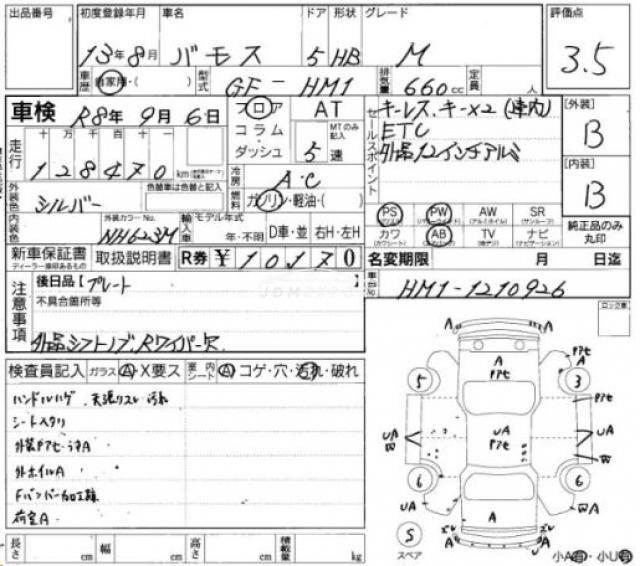 出品番号 初度登録年月 車名 ドア 形状 グレード 評価点
13年8月 バモス 5 HB M 3.5
車歴 自家用・( ) 型式 GF-HM1 排気量 660cc 定員 人
車検 R8年9月6日 フロア AT セールスポイント キーレス.キーX2(車内) [外装]
コラム・ ETC B
ダッシュ MTのみ記入 5速 外品12インチアルミ
走行 十 万 千 百 十 一
128470km
冷房 A・C [内装]
外装色 シルバー 色替車は色替と記入 燃料 ガソリン・軽油・( ) B
PS PW AW SR
(パワステ) (パワーウインドウ) (アルミホイル) (サンルーフ)
内装色 外装カラーNo. 輸入車 モデル年式 カワ AB TV ナビ 純正品のみ
NH623M 年・不明 D車・並 右H・左H (カワシート) (エアバッグ) (地デジ) (ナビゲーション) 丸印
新車保証書 取扱説明書 R券 ¥10170 名変期限 月 日迄
ディーラー捺印あるもの
車台No HM1-1210926
注意事項 後日品【プレート 】
不具合箇所等
外品シフトノブ.Rワイパー欠
ロック車
検査員記入 ガラス A・X要ス 室内シート A コゲ・穴・汚れ・破れ
ハンドルハゲ 天張リスレ 汚れ
シートヘタリ
外装PアセーうすA
外ホイルA
Fバンパー加工跡
荷室A
A
A Pアセ
A
A Pアセ
5 3
Pアセ
UA UA Pアセ UA
W W
6 6
UA A WA
S
スペア
A A A A
長さ cm 幅 cm 高さ cm 積載量 kg
小A有・小U有